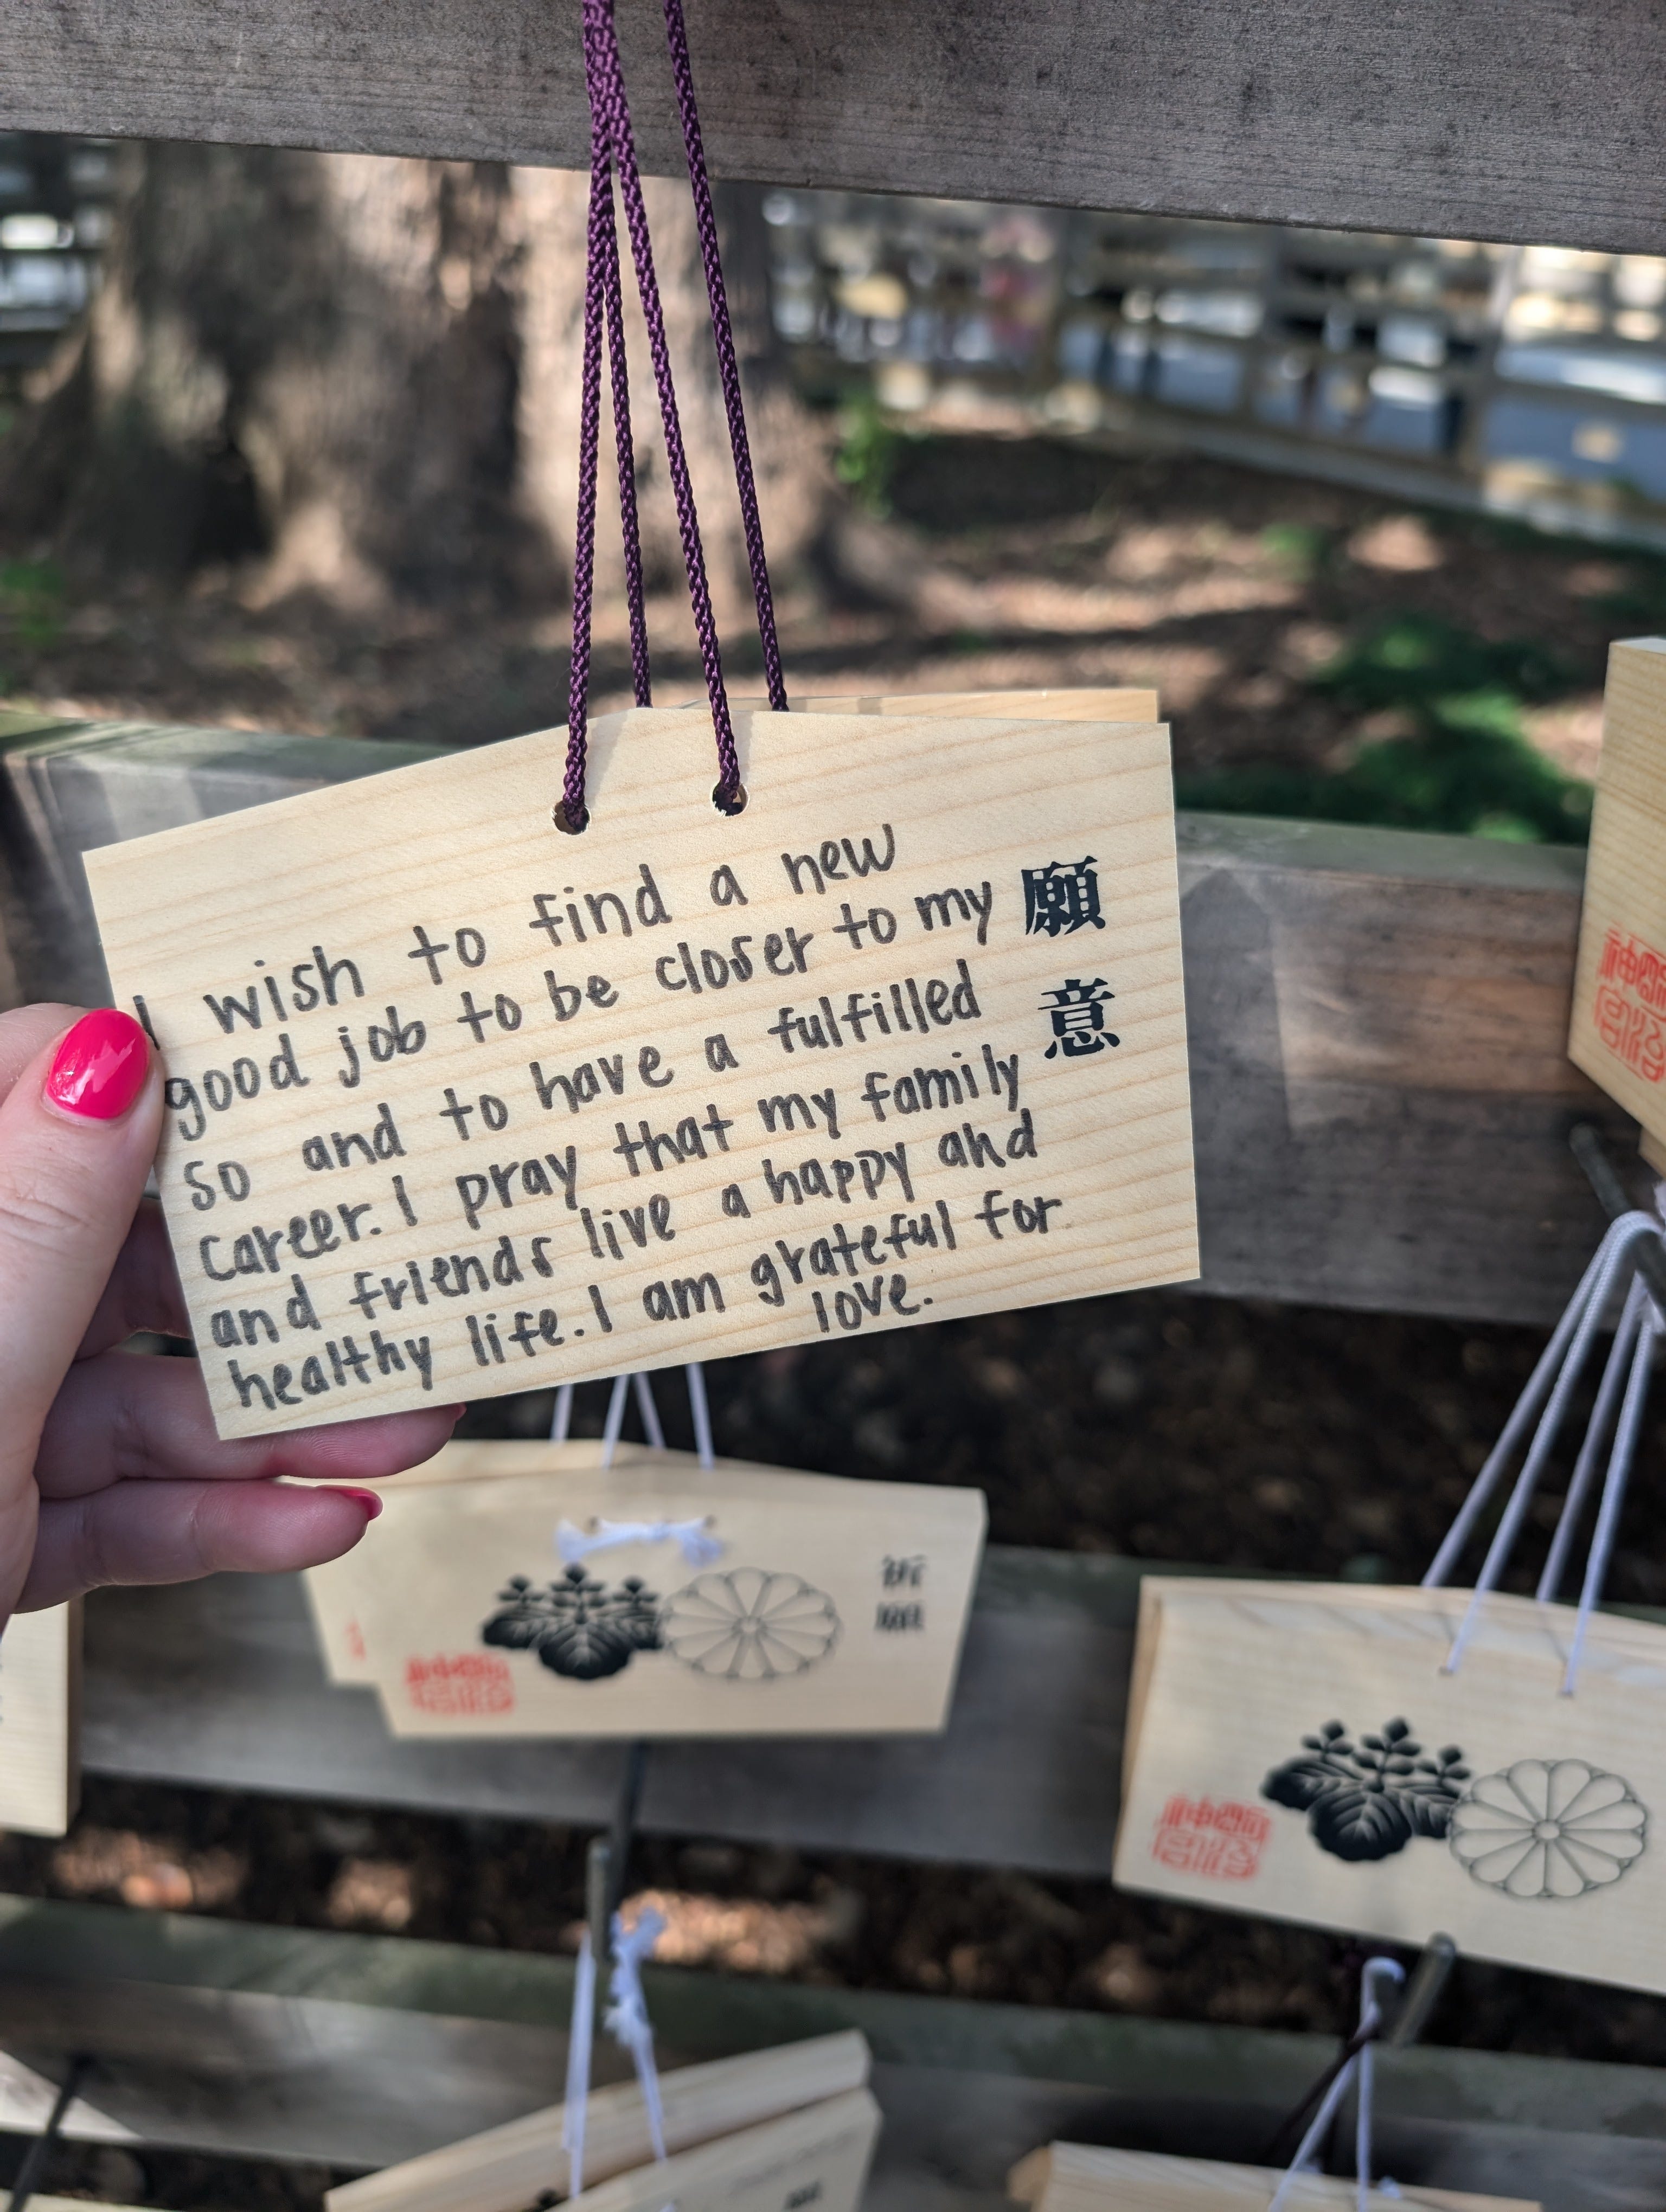 I wish to find a new
good job to be closer to my
so and to have a fulfilled
career. I pray that my family
and friends live a happy and
healthy life. I am grateful for
love.
願意
祈願